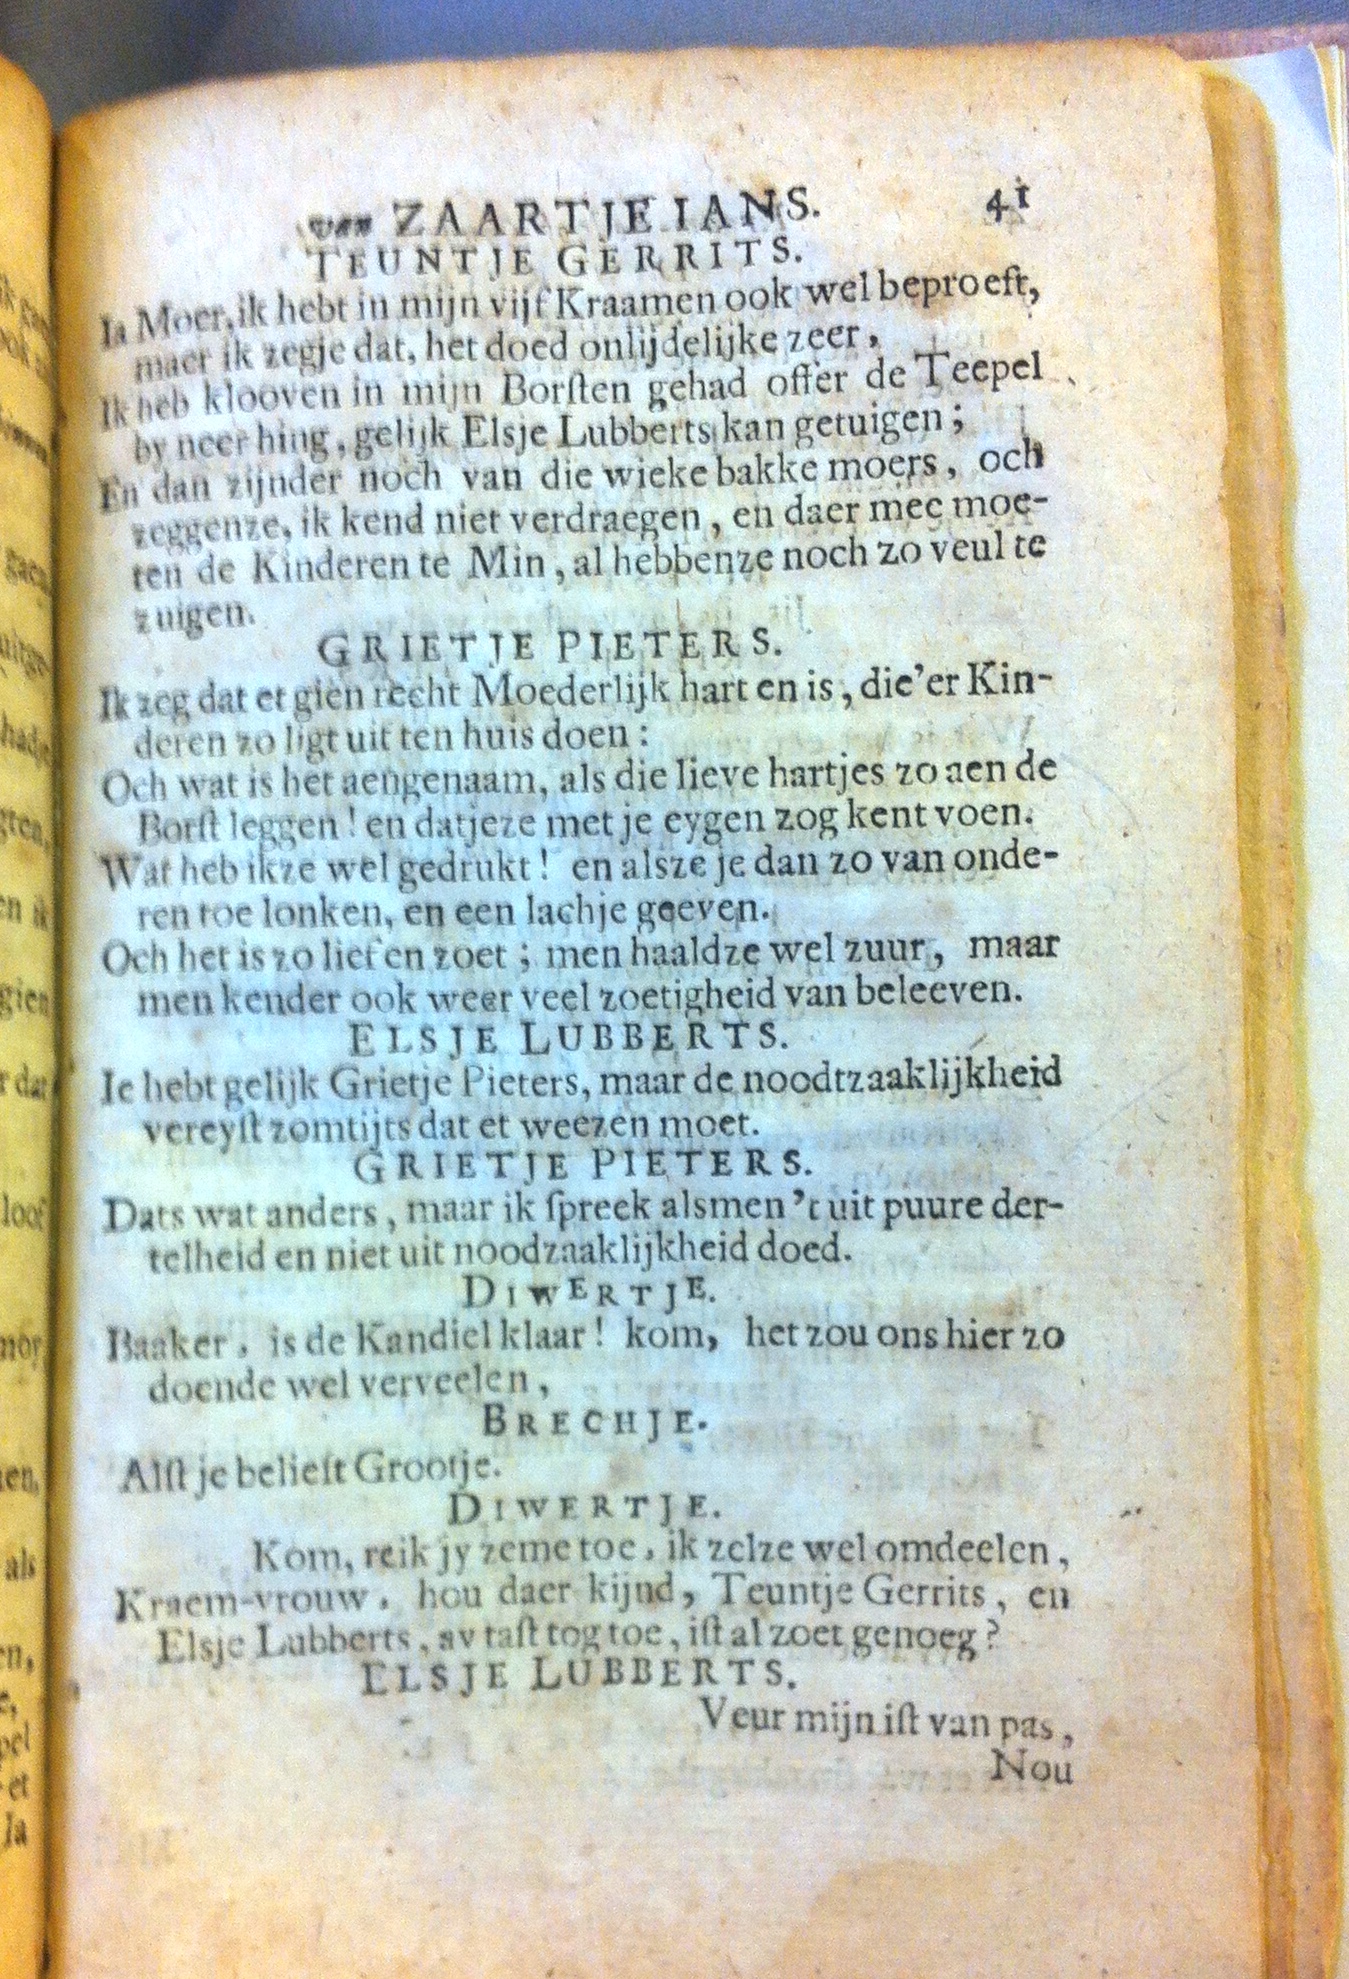 van ZAARTJE IANS. 41
TEUNTJE GERRITS.
Ia Moer, ik hebt in mijn vijf Kraamen ook wel beproeft,
maer ik zegje dat, het doed onlijdelijke zeer,
Ik heb klooven in mijn Borſten gehad offer de Teepel
by neer hing, gelijk Elsje Lubberts kan getuigen;
En dan zijnder noch van die wieke bakke moers, och
zeggenze, ik kend niet verdraegen, en daer mee moe-
ten de Kinderen te Min, al hebbenze noch zo veul te
zuigen.
GRIETJE PIETERS.
Ik zeg dat et gien recht Moederlijk hart en is, die'er Kin-
deren zo ligt uit ten huis doen:
Och wat is het aengenaam, als die lieve hartjes zo aen de
Borſt leggen! en datjeze met je eygen zog kent voen.
Wat heb ikze wel gedrukt! en alsze je dan zo van onde-
ren toe lonken, en een lachje geeven.
Och het is zo lief en zoet; men haaldze wel zuur, maar
men kender ook weer veel zoetigheid van beleeven.
ELSJE LUBBERTS.
Ie hebt gelijk Grietje Pieters, maar de noodtzaaklijkheid
vereyſt zomtijts dat et weezen moet.
GRIETJE PIETERS.
Dats wat anders, maar ik ſpreek alsmen 't uit puure der-
telheid en niet uit noodzaaklijkheid doed.
DIWERTJE.
Baaker, is de Kandiel klaar! kom, het zou ons hier zo
doende wel verveelen,
BRECHJE.
Alſt je belieft Grootje.
DIWERTJE.
Kom, reik jy zeme toe, ik zelze wel omdeelen,
Kraem-vrouw, hou daer kijnd, Teuntje Gerrits, en
Elsje Lubberts, av taſt tog toe, iſt al zoet genoeg?
ELSJE LUBBERTS.
Veur mijn iſt van pas,
Nou